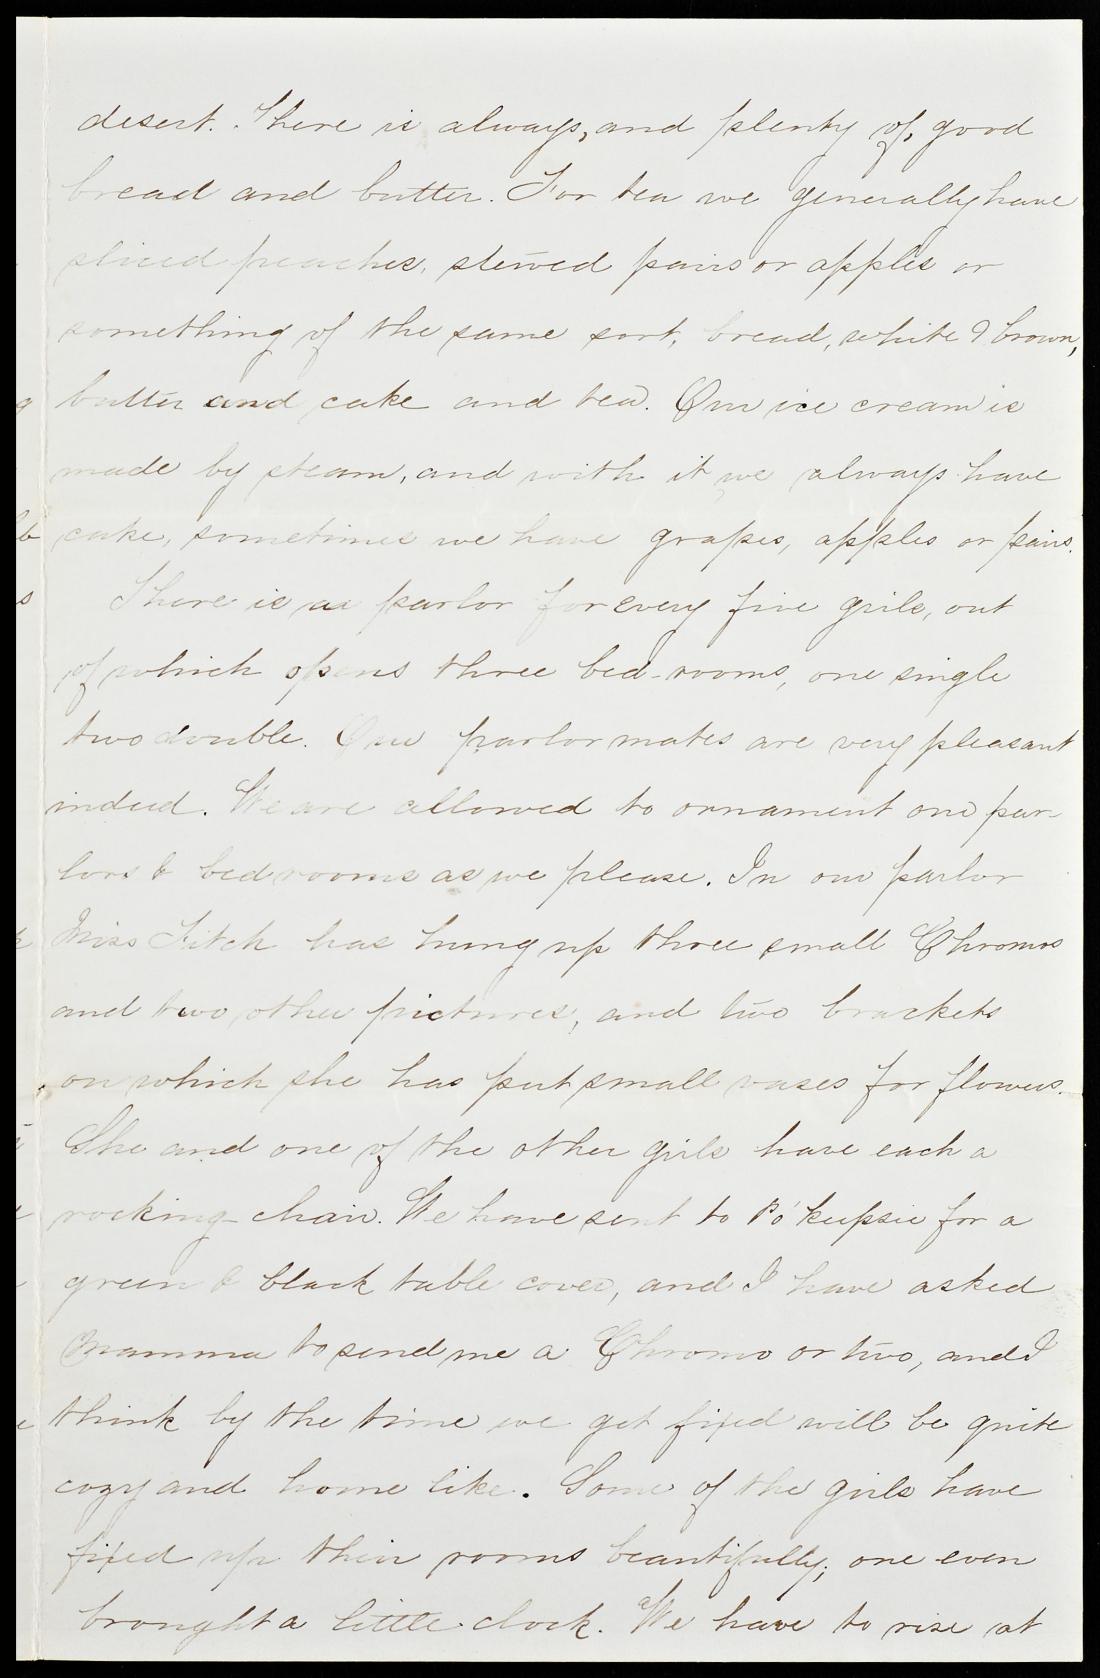 desert. There is always, and plenty of, good
bread and butter. For tea we generally have
sliced peaches, stewed pairs or apples or
something of the same sort, bread, white & brown,
butter and cake and tea. Our ice cream is
made by steam, and with it we always have
cake, sometimes we have grapes, apples or pairs.
There is a parlor for every five girls, out
of which opens three bed-rooms, one single
two double. Our parlor mates are very pleasant
indeed. We are allowed to ornament our par-
lors & bedrooms as we please. In our parlor
Miss Fitch has hung up three small Chromos
and two other pictures, and two brackets
on which she has put small vases for flowers.
She and one of the other girls have each a
rocking-chair. We have sent to Po'keepsie for a
green & black table cover, and I have asked
Mamma to send me a Chromo or two, and I
think by the time we get fixed will be quite
cozy and home like. Some of the girls have
fixed up their rooms beautifully; one even
brought a little clock. We have to rise at